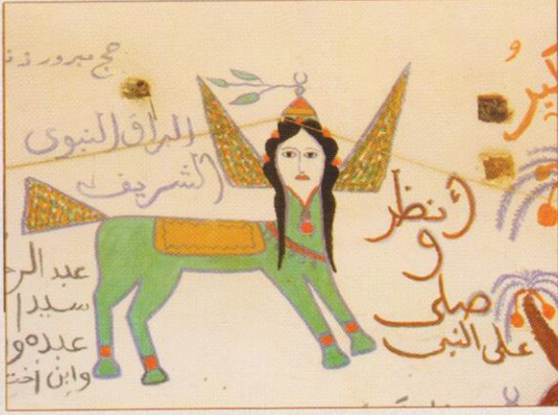 حج مبرور
البراق النبوى
الشريف
أنظر
و
صلى
على النبى
عبد الر
سيد
عبده و
وابن اخت